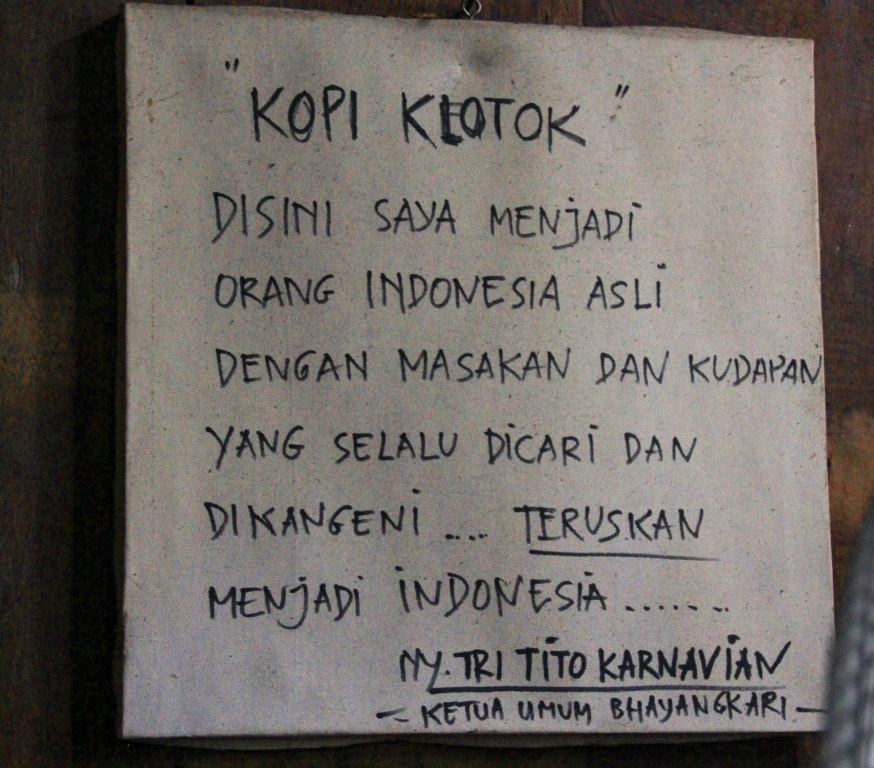 "KOPI KLOTOK"
DISINI SAYA MENJADI
ORANG INDONESIA ASLI
DENGAN MASAKAN DAN KUDAPAN
YANG SELALU DICARI DAN
DIKANGENI .... TERUSKAN
MENJADI INDONESIA .......
NY. TRI TITO KARNAVIAN
- KETUA UMUM BHAYANGKARI -